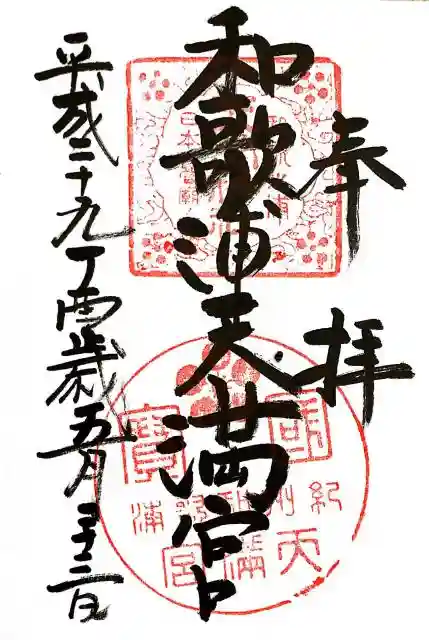 奉拝
和歌浦天満宮
平成二十九丁酉歳五月二十二日
國寶
紀州
和歌浦
天満宮